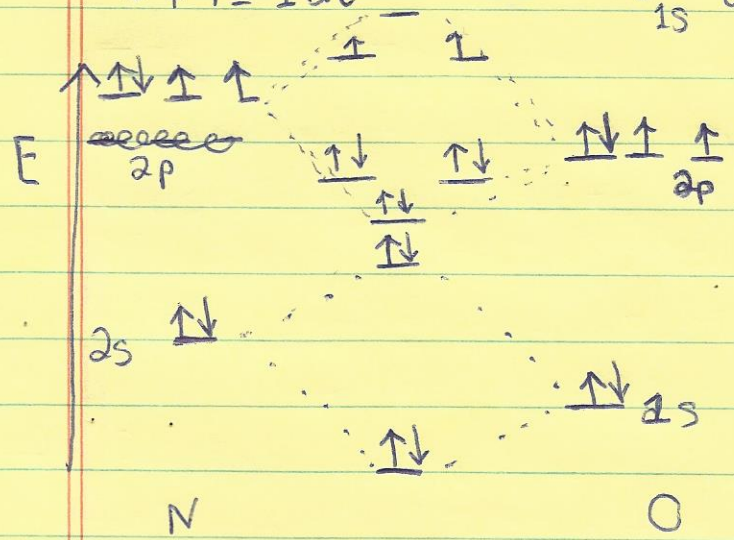 1s
E
2p
2p
2s
2s
N
O